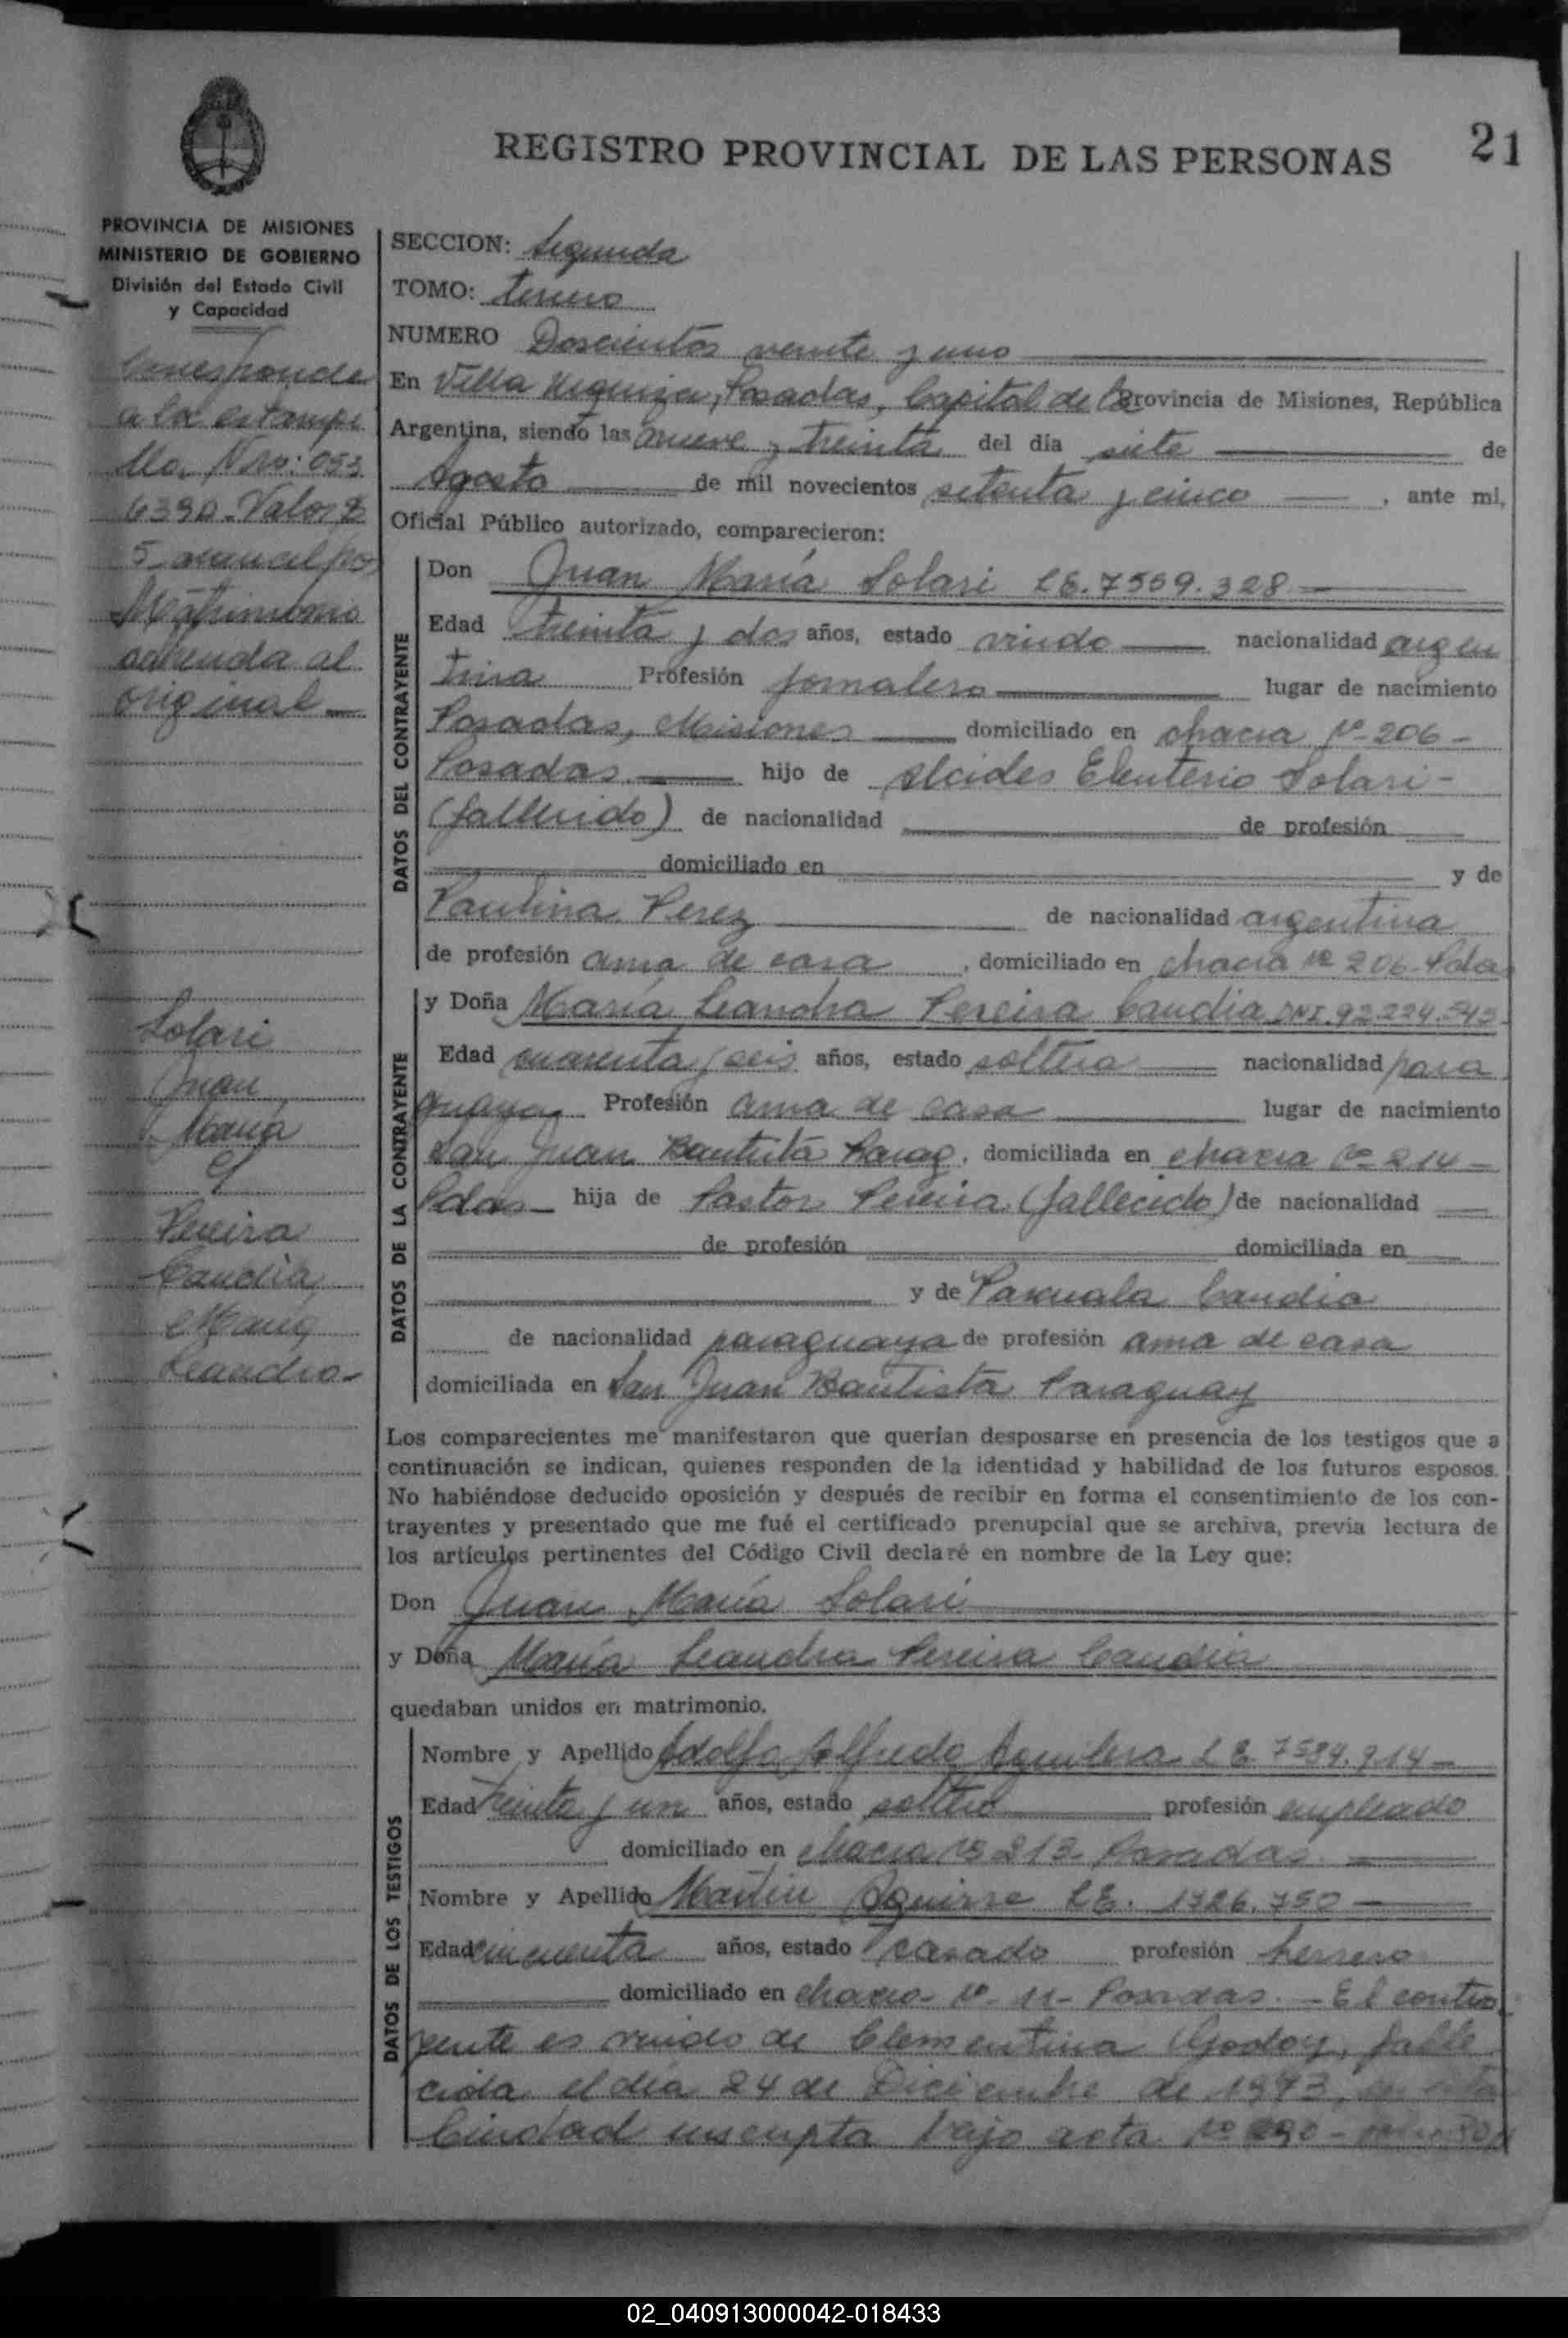 REGISTRO PROVINCIAL DE LAS PERSONAS
21
PROVINCIA DE MISIONES
MINISTERIO DE GOBIERNO
División del Estado Civil
y Capacidad
Corresponde
a la estampi
lla Nro: 053
6390. Valor $
5
Matrimonio
adherida al
original
Solari
Juan
María
y
Pereira
Candia
María
Leandra
SECCION: Segunda
TOMO: tercero
NUMERO Doscientos veinte y uno
En Villa Urquiza, Posadas, Capital de la Provincia de Misiones, República
Argentina, siendo las nueve y treinta del día siete de
Agosto de mil novecientos setenta y cinco, ante mi,
Oficial Público autorizado, comparecieron:
DATOS DEL CONTRAYENTE
Don Juan María Solari LE. 7559.328
Edad treinta y dos años, estado viudo nacionalidad argen
tina Profesión jornalero lugar de nacimiento
Posadas, Misiones domiciliado en chacra Nº 206-
Posadas hijo de Alcides Eleuterio Solari-
(fallecido) de nacionalidad de profesión
domiciliado en y de
Paulina Perez de nacionalidad argentina
de profesión ama de casa, domiciliado en chacra Nº 206-Pdas
DATOS DE LA CONTRAYENTE
y Doña María Leandra Pereira Candia DNI. 92.224.343
Edad cuarenta y seis años, estado soltera nacionalidad para
guaya Profesión ama de casa lugar de nacimiento
San Juan Bautista Parag, domiciliada en chacra Nº 214-
Pdas- hija de Pastor Pereira (fallecido) de nacionalidad
de profesión domiciliada en
y de Pascuala Candia
de nacionalidad paraguaya de profesión ama de casa
domiciliada en San Juan Bautista Paraguay
Los comparecientes me manifestaron que querían desposarse en presencia de los testigos que a
continuación se indican, quienes responden de la identidad y habilidad de los futuros esposos.
No habiéndose deducido oposición y después de recibir en forma el consentimiento de los con-
trayentes y presentado que me fué el certificado prenupcial que se archiva, previa lectura de
los artículos pertinentes del Código Civil declaré en nombre de la Ley que:
Don Juan María Solari
y Doña María Leandra Pereira Candia
quedaban unidos en matrimonio.
DATOS DE LOS TESTIGOS
Nombre y Apellido Adolfo Alfredo Aguilera LE 7584.914-
Edad treinta y un años, estado soltero profesión empleado
domiciliado en chacra Nº 212 Posadas.
Nombre y Apellido Martin Aguirre LE. 1726.750
Edad cincuenta años, estado casado profesión herrero
domiciliado en chacra- Nº 11- Posadas.- El contra
yente es viudo de Clementina Godoy, falle
cida el día 24 de Diciembre de 1973, en esta
Ciudad inscripta bajo acta Nº
02_040913000042-018433